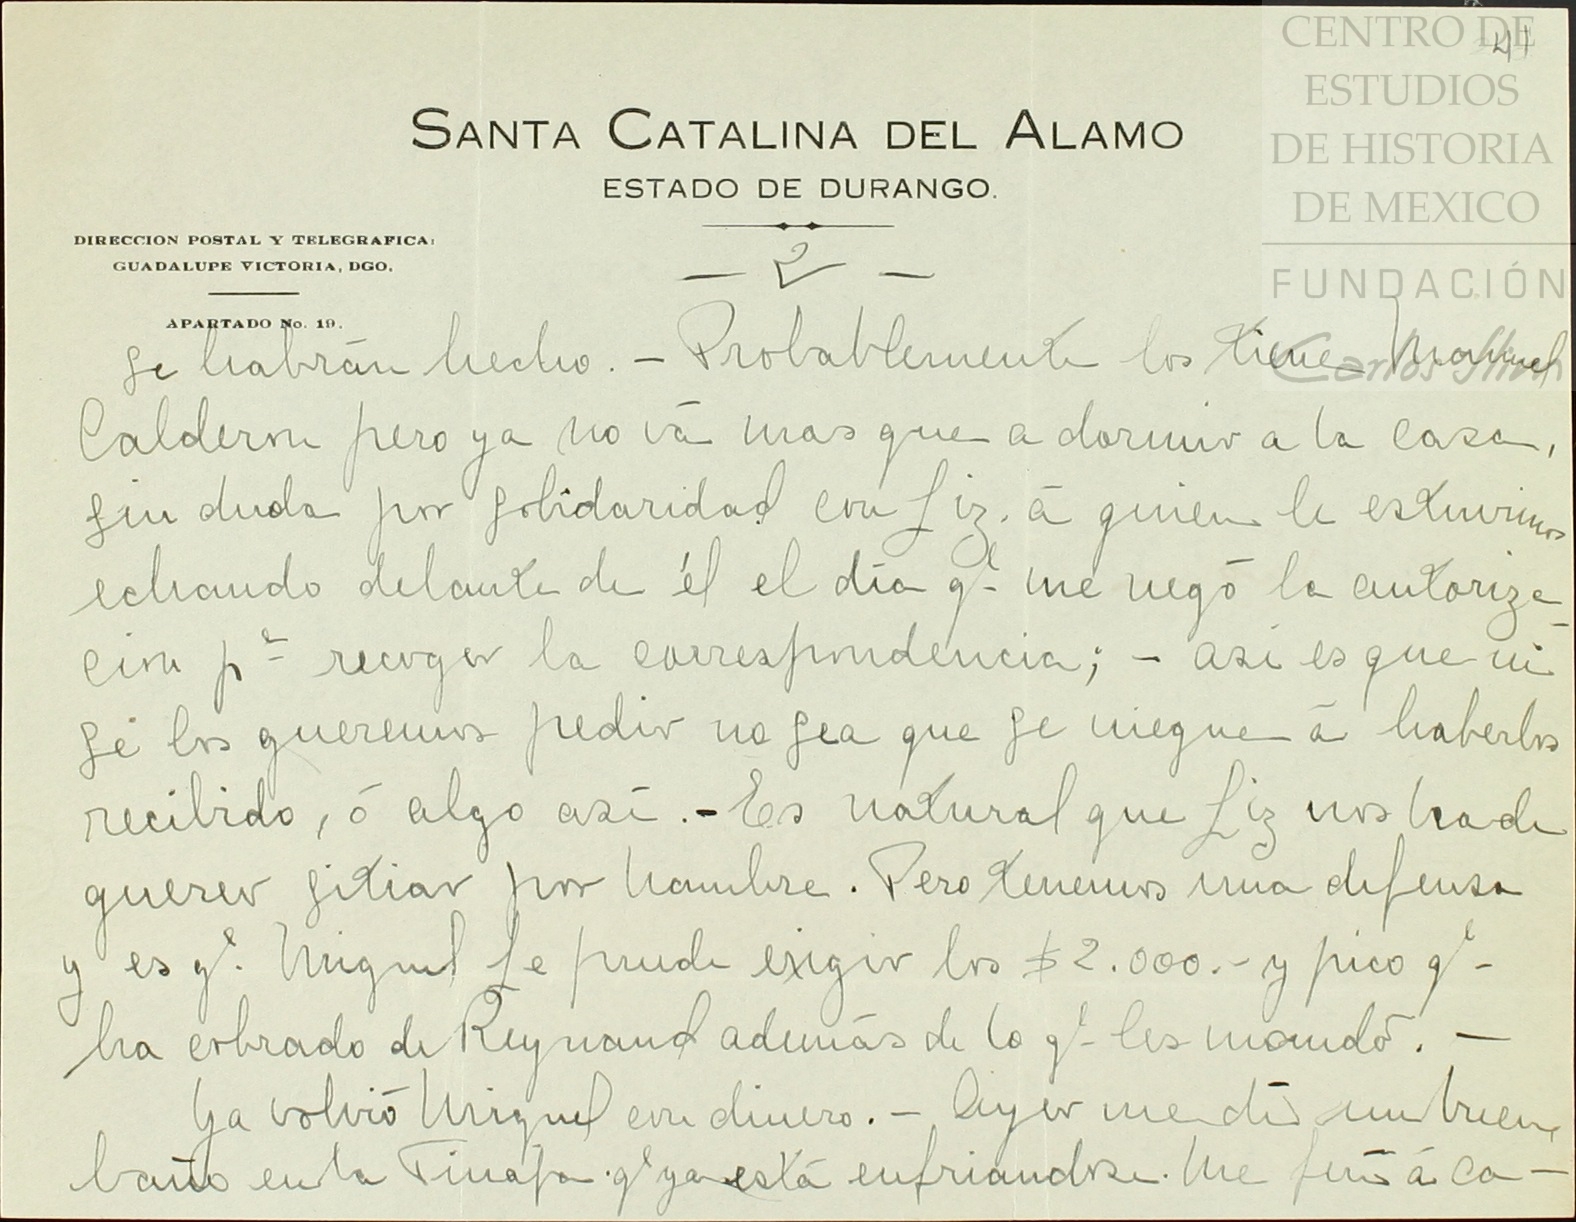 41
CENTRO DE
ESTUDIOS
DE HISTORIA
DE MEXICO
FUNDACIÓN
Carlos Slim
SANTA CATALINA DEL ALAMO
ESTADO DE DURANGO.
DIRECCION POSTAL Y TELEGRAFICA:
GUADALUPE VICTORIA, DGO.
APARTADO No. 19.
— 2 —
se habrán hecho. — Probablemente los tiene Manuel
Calderon pero ya no vá mas que a dormir a la casa,
sin duda por solidaridad con Liz. á quien le estuvimos
echando delante de él el día qe me negó la autoriza-
cion pa recoger la correspondencia; — asi es que ni
se los queremos pedir no sea que se niegue á haberlos
recibido, ó algo así. — Es natural que Liz nos ha de
querer sitiar por hambre. Pero tenemos una defensa
y es qe. Miguel le puede exigir los $2.000.- y pico qe
ha cobrado de Reynaud además de lo qe les mandó. —
Ya volvió Miguel con dinero. — Ayer me dí un buen
baño en la Tinaja qe ya está enfriandose. Me fuí á ca-